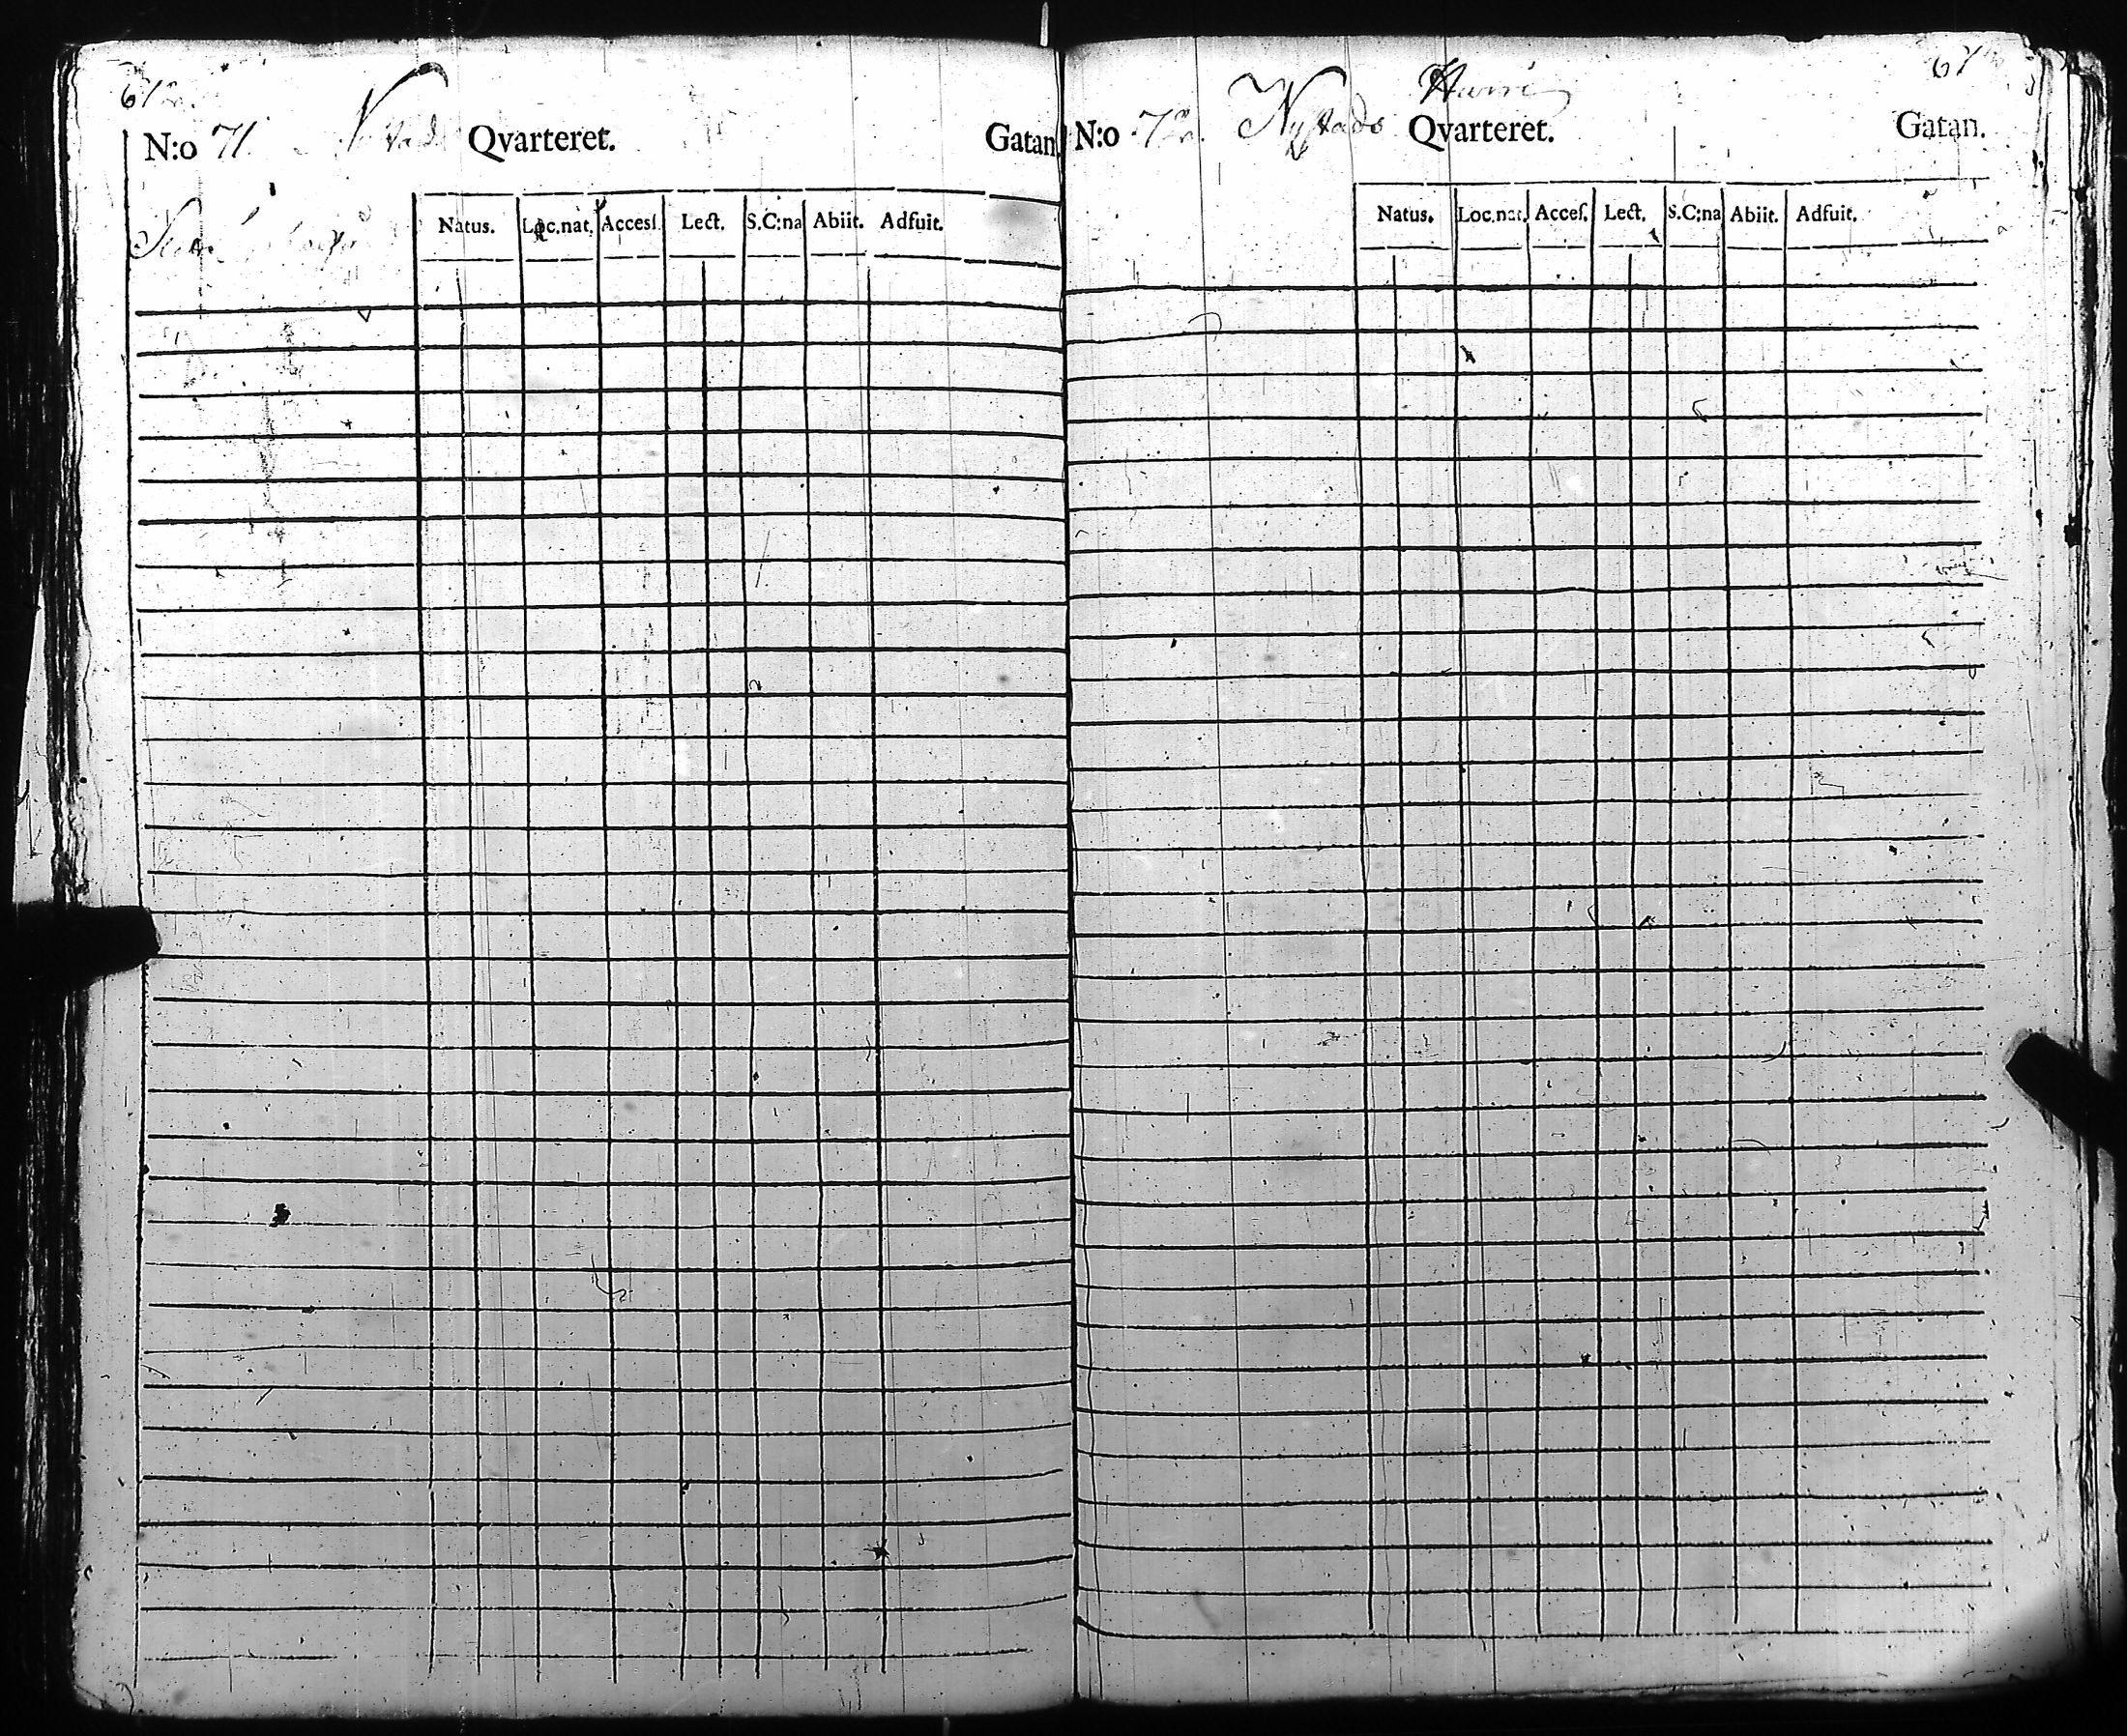 67
N:o 71 Qvarteret. Gatan.
Natus. Loc.nat. Accesſ. Lect. S.C:na Abiit. Adfuit.
67
N:o 72. Nystads Qvarteret. Gatan.
Natus. Loc.nat. Acceſ. Lect. S.C:na Abiit. Adfuit.